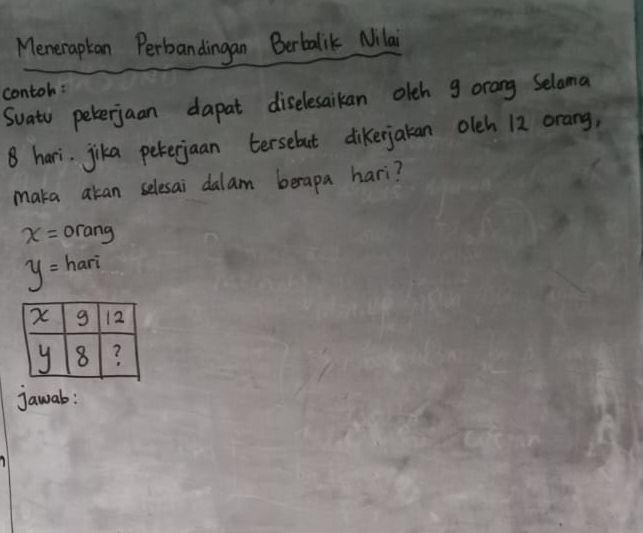 Menerapkan Perbandingan Berbalik Nilai
contoh:
Suatu pekerjaan dapat diselesaikan oleh 9 orang Selama
8 hari. jika pekerjaan tersebut dikerjakan oleh 12 orang,
maka akan selesai dalam berapa hari?
x = orang
y = hari
x 9 12
y 8 ?
jawab: